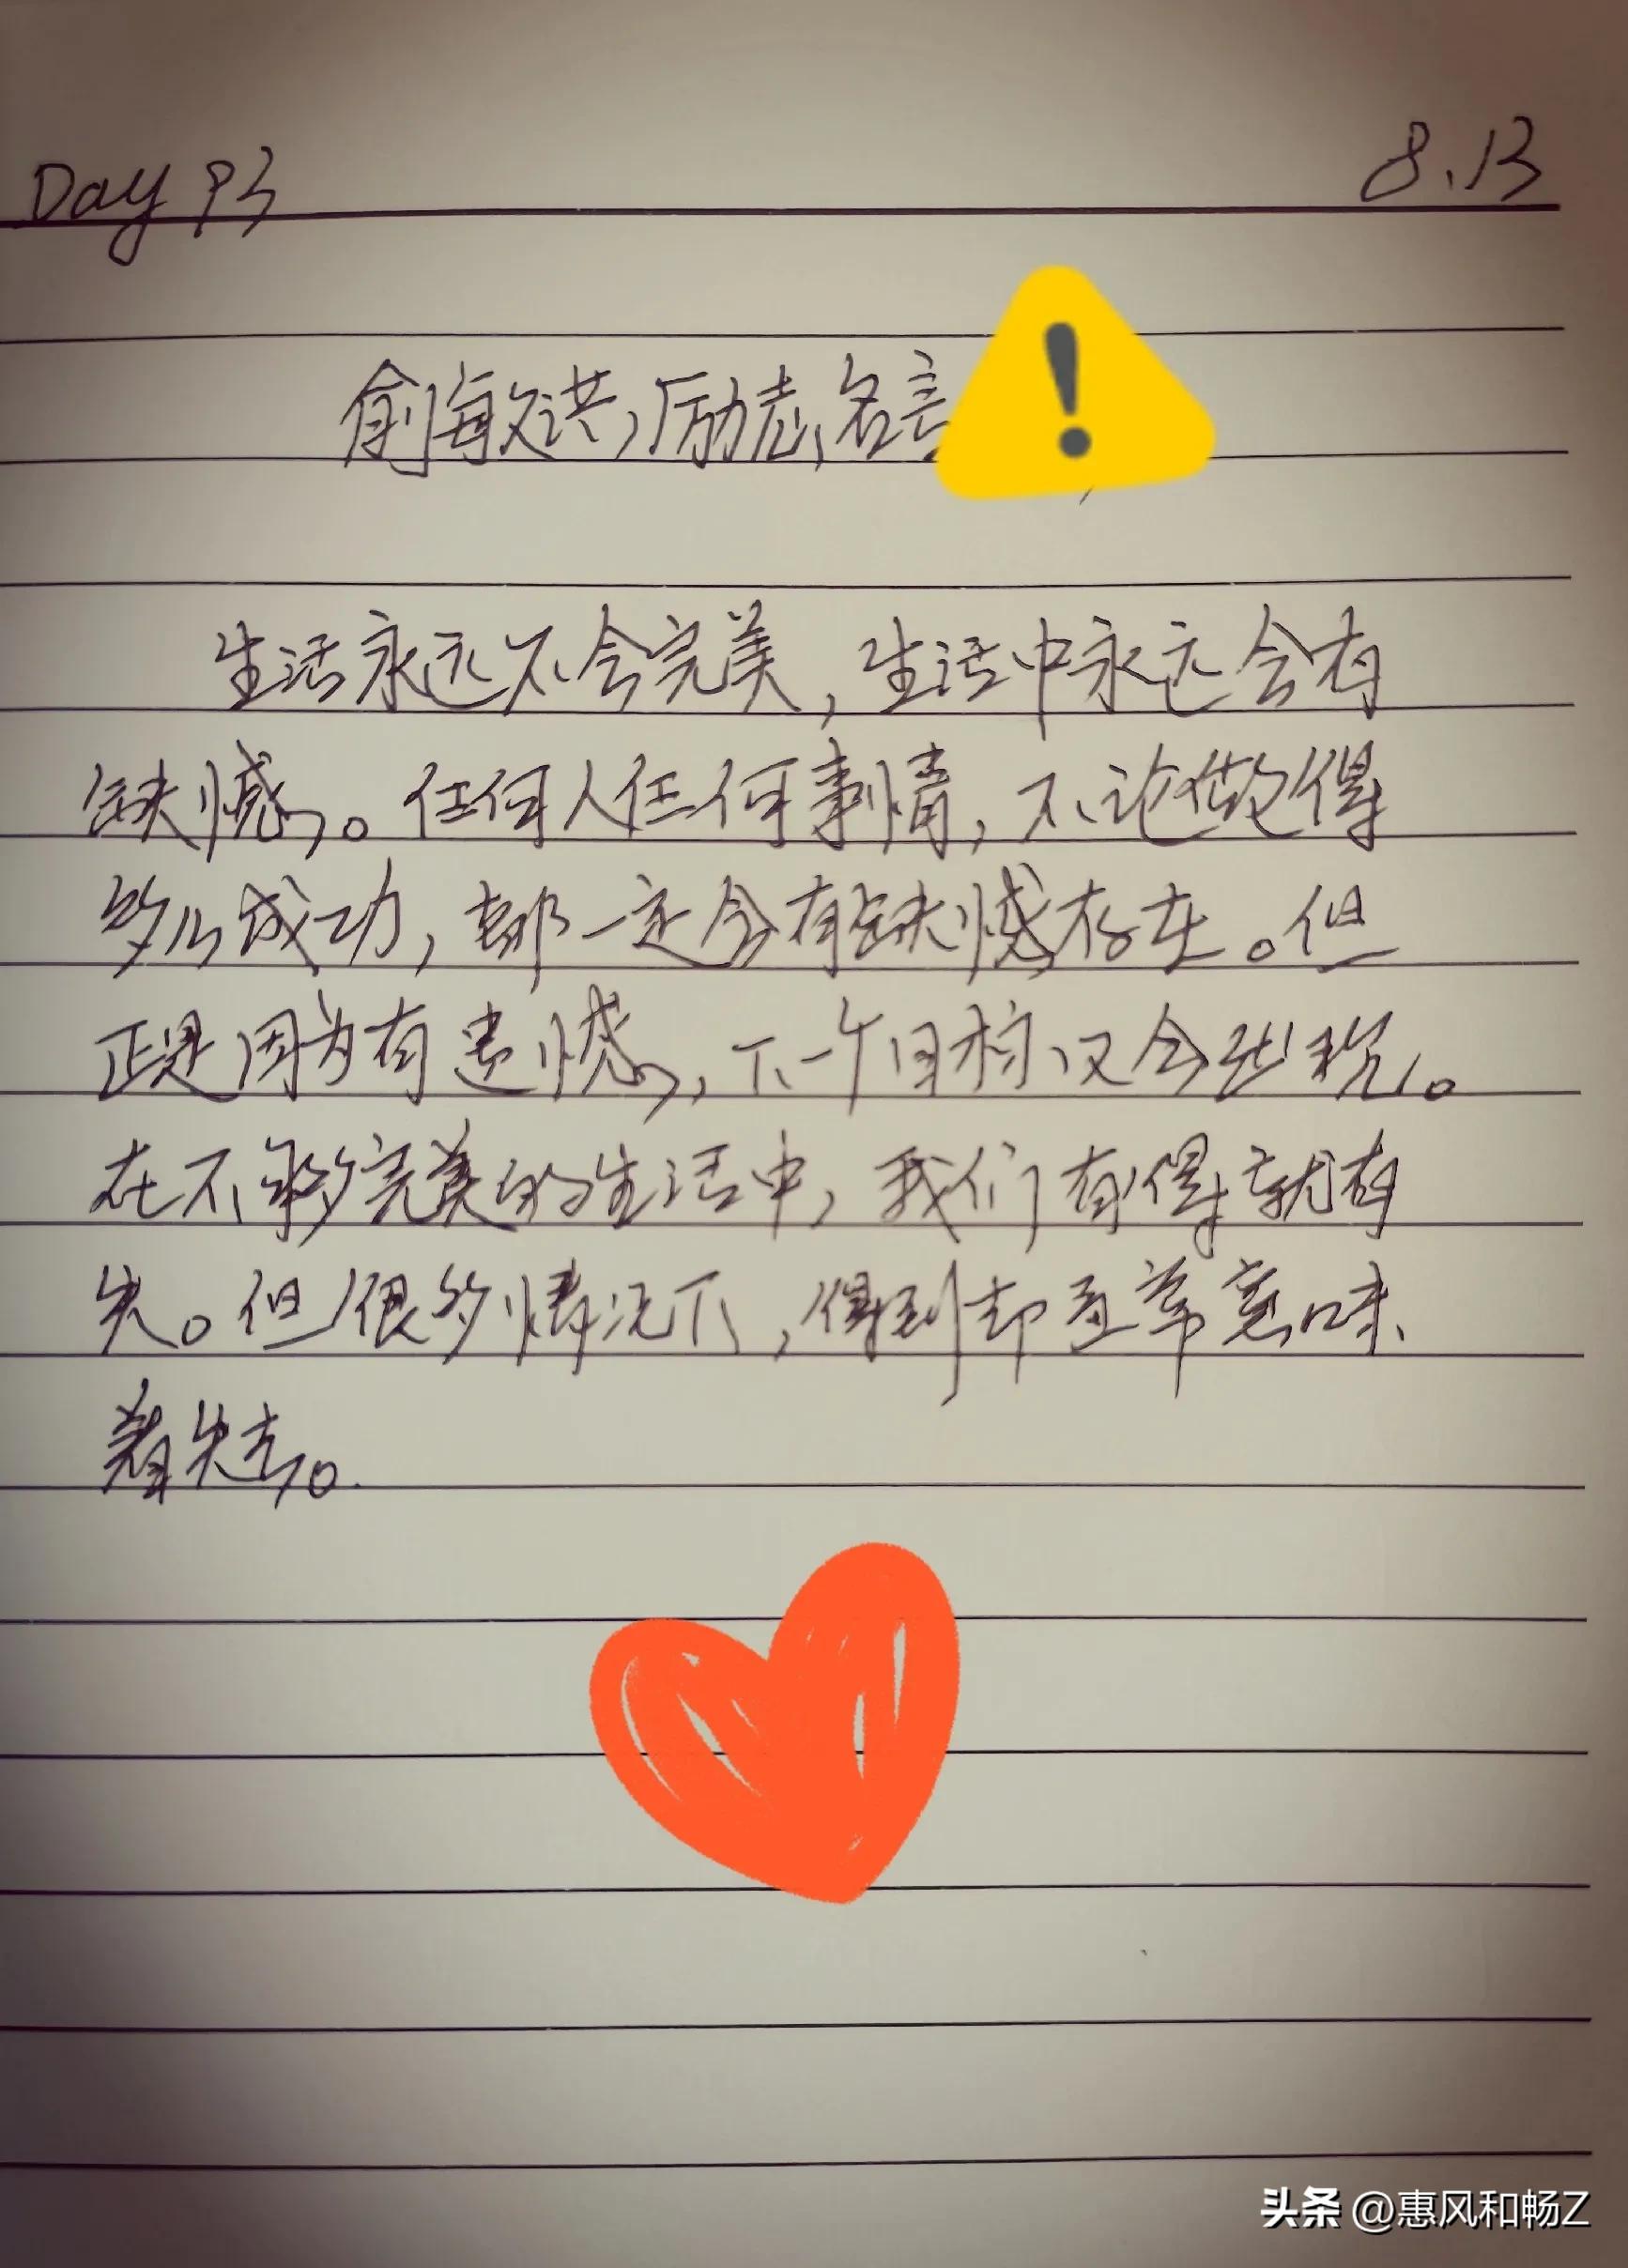 Day 93 8.13
俞敏洪,励志名言
生活永远不会完美,生活中永远会有
缺憾。任何人任何事情,不论做得
多么成功,都一定会有缺憾存在。但
正是因为有遗憾,下一个目标又会出现。
在不够完美的生活中,我们有得就有
失。但很多情况下,得到却通常意味
着失去。
头条 @惠风和畅Z